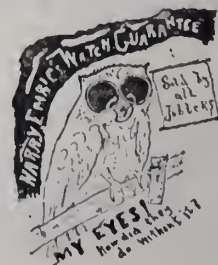 HARRY EMBC WATCH GUARANTEE
Sold by
all
Jobbers
MY EYES!
How did they
do without it?